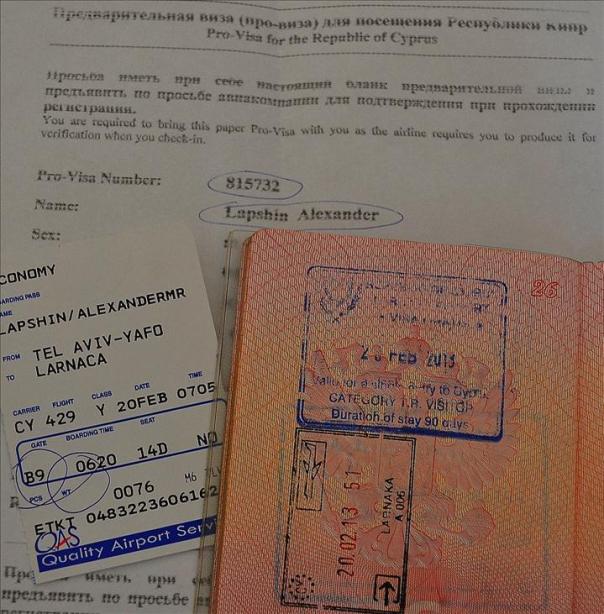 Предварительная виза (про-виза) для посещения Республики Кипр
Pro-Visa for the Republic of Cyprus
Просьба иметь при себе настоящий бланк предварительной визы и
предъявить по просьбе авиакомпании для подтверждения при прохождении
регистрации.
You are required to bring this paper Pro-Visa with you as the airline requires you to produce it for
verification when you check-in.
Pro-Visa Number: 815732
Name: Lapshin Alexander
Sex:
CONOMY
ARDING PASS
AME
LAPSHIN/ALEXANDERMR
FROM TEL AVIV-YAFO
TO LARNACA
CARRIER FLIGHT CLASS DATE TIME
CY 429 Y 20FEB 0705
GATE BOARDING TIME SEAT
B9 0620 14D NO
PCS WT
0076 M6
ETKT 0483223606162
QAS
Quality Airport Serv
26
20 FEB 2013
Valid for a single entry to Cyprus
CATEGORY T.R. VISITOR
Duration of stay 90 days
20.02.13 51
LARNAKA
A 006
CY
иметь, при
предъявить по просьбе